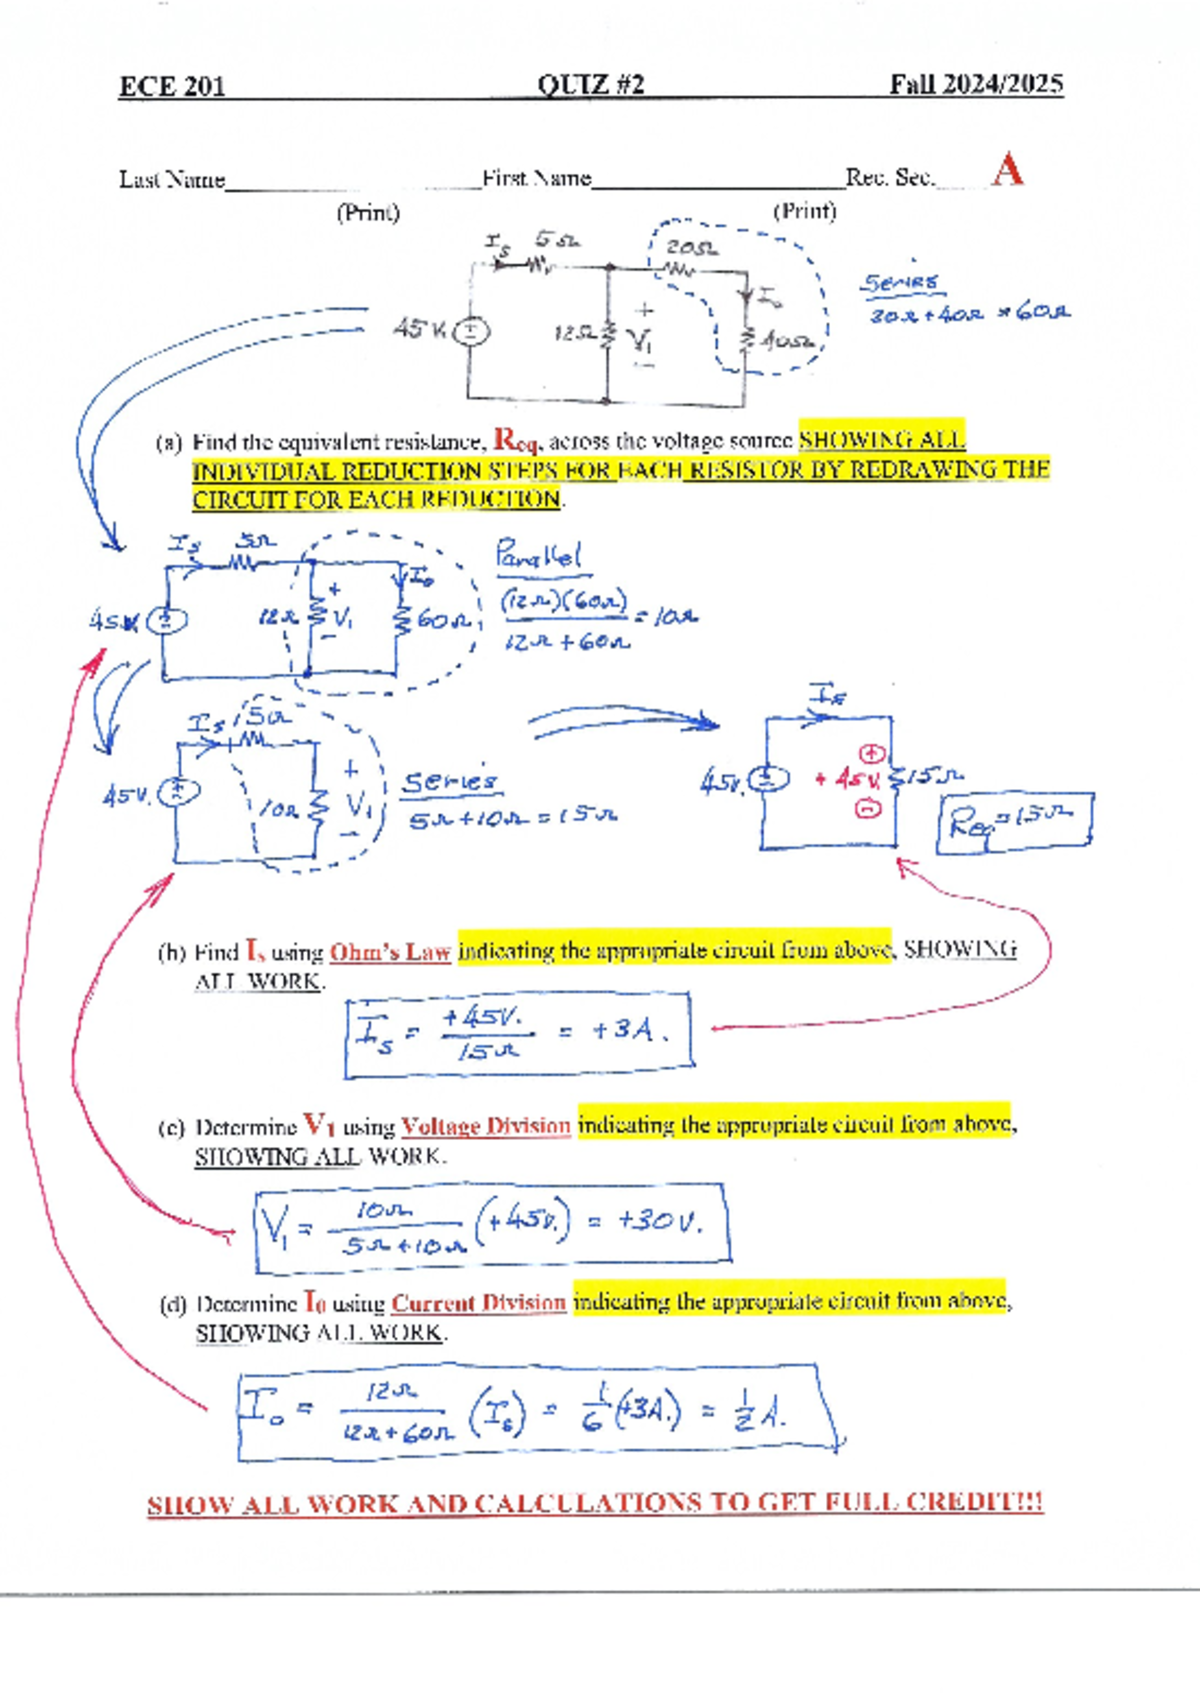 ECE 201 QUIZ #2 Fall 2024/2025
Last Name First Name Rec. Sec. A
(Print) (Print)
Is 5Ω 20Ω
Series
20Ω+40Ω = 60Ω
Io
45V. + - 12Ω + V1 - 40Ω
(a) Find the equivalent resistance, Req, across the voltage source SHOWING ALL
INDIVIDUAL REDUCTION STEPS FOR EACH RESISTOR BY REDRAWING THE
CIRCUIT FOR EACH REDUCTION.
Is 5Ω Io
45V. 12Ω + V1 - 60Ω
Parallel
(12Ω)(60Ω) / 12Ω+60Ω = 10Ω
Is 5Ω
45V. 10Ω + V1 -
Series
5Ω+10Ω=15Ω
Is
45V. + +45V. - 15Ω
Req=15Ω
(b) Find Is using Ohm's Law indicating the appropriate circuit from above, SHOWING
ALL WORK.
Is = +45V. / 15Ω = +3A.
(c) Determine V1 using Voltage Division indicating the appropriate circuit from above,
SHOWING ALL WORK.
V1 = 10Ω / 5Ω+10Ω (+45V.) = +30V.
(d) Determine I0 using Current Division indicating the appropriate circuit from above,
SHOWING ALL WORK.
Io = 12Ω / 12Ω+60Ω (Is) = 1/6 (+3A.) = 1/2 A.
SHOW ALL WORK AND CALCULATIONS TO GET FULL CREDIT!!!